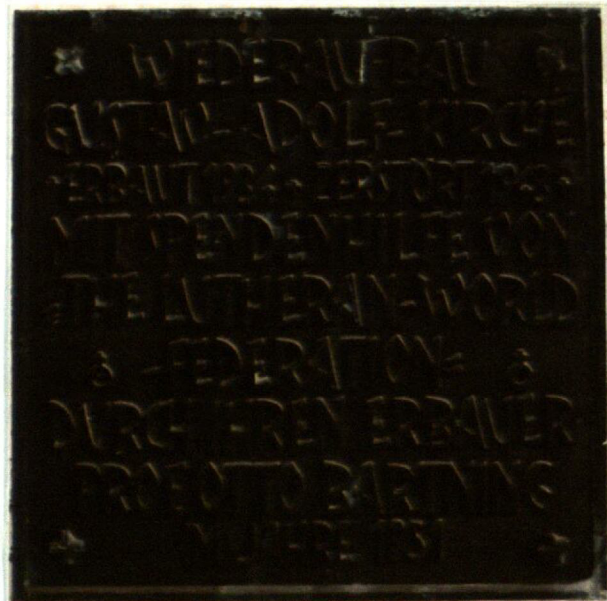 WIEDERAUFBAU
GUSTAV-ADOLF-KIRCHE
ERBAUT 1934 ZERSTÖRT 1943
MIT SPENDENHILFE VON
THE LUTHERAN-WORLD
-FEDERATION-
DURCH IHREN ERBAUER
PROF OTTO BARTNING
JAHRE 1951